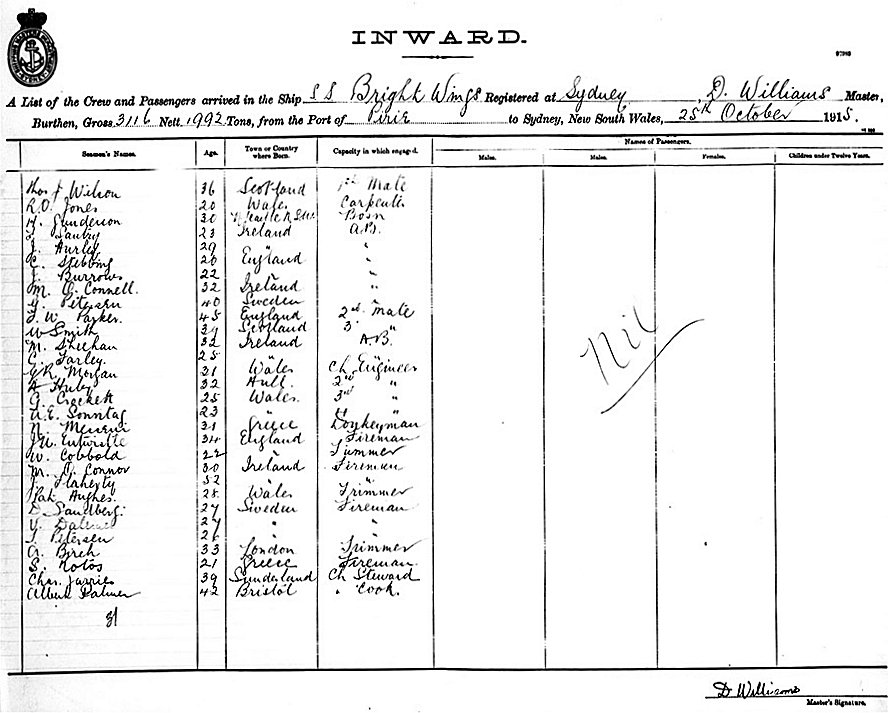 INWARD.
A List of the Crew and Passengers arrived in the Ship SS Bright Wings Registered at Sydney, D. Williams Master,
Burthen, Gross 3116 Nett 1992 Tons, from the Port of Pirie to Sydney, New South Wales, 25th October 1915.
Seamen's Names. Age. Town or Country where Born. Capacity in which engaged. Names of Passengers.
Males. Males. Females. Children under Twelve Years.
Thos J Wilson 36 Scotland 1st Mate
R.O. Jones 20 Wales Carpenter
H. Gunderson 30 N'castle N.S.W. Bosn
23 Ireland A.B.
J. Hurley 29 " "
C. Stebbing 20 England "
J. Burrows 22 " "
M. O. Connell. 32 Ireland "
G. Petersen 40 Sweden "
F. W. Parker. 45 England 2nd Mate
W Smith 39 Scotland 3 "
M. Sheehan 32 Ireland A.B.
C. Farley. 25 " "
G R. Morgan 31 Wales Ch Engineer
A Huby 32 Hull. 2nd "
G. Crockett 25 Wales. 3rd "
A.E. Sonntag 23 " "
N. 31 Greece Donkeyman
J.W. Entwistle 34 England Fireman
W. Cobbold 22 " Trimmer
M. O. Connor 30 Ireland Fireman
J. Flaherty 52 " "
Pat. Hughes. 28. Wales Trimmer
D. Sandberg. 27 Sweden Fireman
27 " "
Petersen 26 " "
A. Birch 33 London Trimmer
S. Kotos 21 Greece Fireman
Chas. Jarvies 39 Sunderland Ch Steward
Albert Palmer 42 Bristol " Cook.
31
Nil
D Williams
Master's Signature.